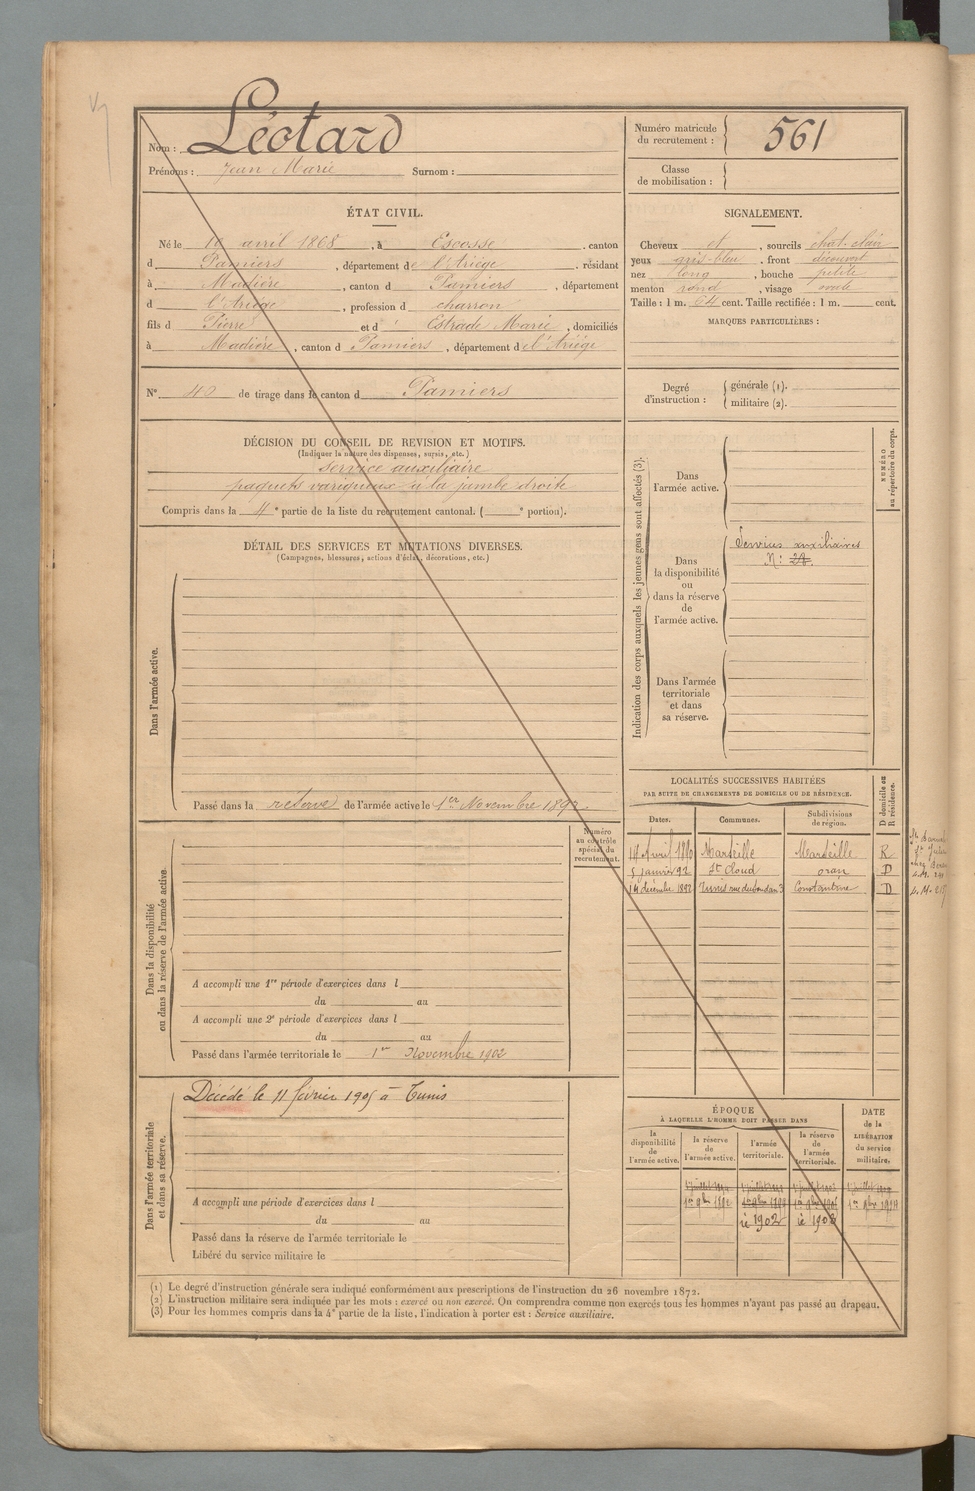 Nom : Léotard
Prénoms : Jean Marie Surnom :
Numéro matricule du recrutement : 561
Classe de mobilisation :
ÉTAT CIVIL.
Né le 10 avril 1868, à Escosse canton
d Pamiers, département de l'Ariège. résidant
à Madière, canton d Pamiers, département
d l'Ariège, profession d charron
fils d Pierre et d Estrade Marie, domiciliés
à Madière, canton d Pamiers, département de l'Ariége
N° 40 de tirage dans le canton d Pamiers
SIGNALEMENT.
Cheveux et, sourcils chat-clair
yeux gris-bleu, front découvert
nez long, bouche petite
menton rond, visage ovale
Taille : 1 m. 64 cent. Taille rectifiée : 1 m. cent.
MARQUES PARTICULIÈRES :
Degré d'instruction : générale (1).
militaire (2).
DÉCISION DU CONSEIL DE REVISION ET MOTIFS.
(Indiquer la nature des dispenses, sursis, etc.)
service auxiliaire
paquets variqueux à la jambe droite
Compris dans la 4e partie de la liste du recrutement cantonal. ( e portion).
DÉTAIL DES SERVICES ET MUTATIONS DIVERSES.
(Campagnes, blessures, actions d'éclat, décorations, etc.)
Dans l'armée active.
Passé dans la réserve de l'armée active le 1er Novembre 1892.
Indication des corps auxquels les jeunes gens sont affectés (3).
NUMÉRO au répertoire du corps.
Dans l'armée active.
Dans la disponibilité ou dans la réserve de l'armée active.
Services auxiliaires
N:
Dans l'armée territoriale et dans sa réserve.
LOCALITÉS SUCCESSIVES HABITÉES
PAR SUITE DE CHANGEMENTS DE DOMICILE OU DE RÉSIDENCE.
D domicile ou R résidence.
Dates. Communes. Subdivisions de région.
Avril 1890 Marseille Marseille R
5 janvier 92 St Cloud oran D
14 décembre 1892 Tunis Constantine D
Numéro au contrôle spécial du recrutement.
Dans la disponibilité ou dans la réserve de l'armée active.
A accompli une 1re période d'exercices dans l
du au
A accompli une 2e période d'exercices dans l
du au
Passé dans l'armée territoriale le 1er Novembre 1902
Dans l'armée territoriale et dans sa réserve.
Décédé le 11 février 1905 à Tunis
A accompli une période d'exercices dans l
du au
Passé dans la réserve de l'armée territoriale le
Libéré du service militaire le
ÉPOQUE
À LAQUELLE L'HOMME DOIT PASSER DANS
la disponibilité de l'armée active.
la réserve de l'armée active.
l'armée territoriale.
la réserve de l'armée territoriale.
DATE de la LIBÉRATION du service militaire.
1902 1908
(1) Le degré d'instruction générale sera indiqué conformément aux prescriptions de l'instruction du 26 novembre 1872.
(2) L'instruction militaire sera indiquée par les mots : exercé ou non exercé. On comprendra comme non exercés tous les hommes n'ayant pas passé au drapeau.
(3) Pour les hommes compris dans la 4e partie de la liste, l'indication à porter est : Service auxiliaire.